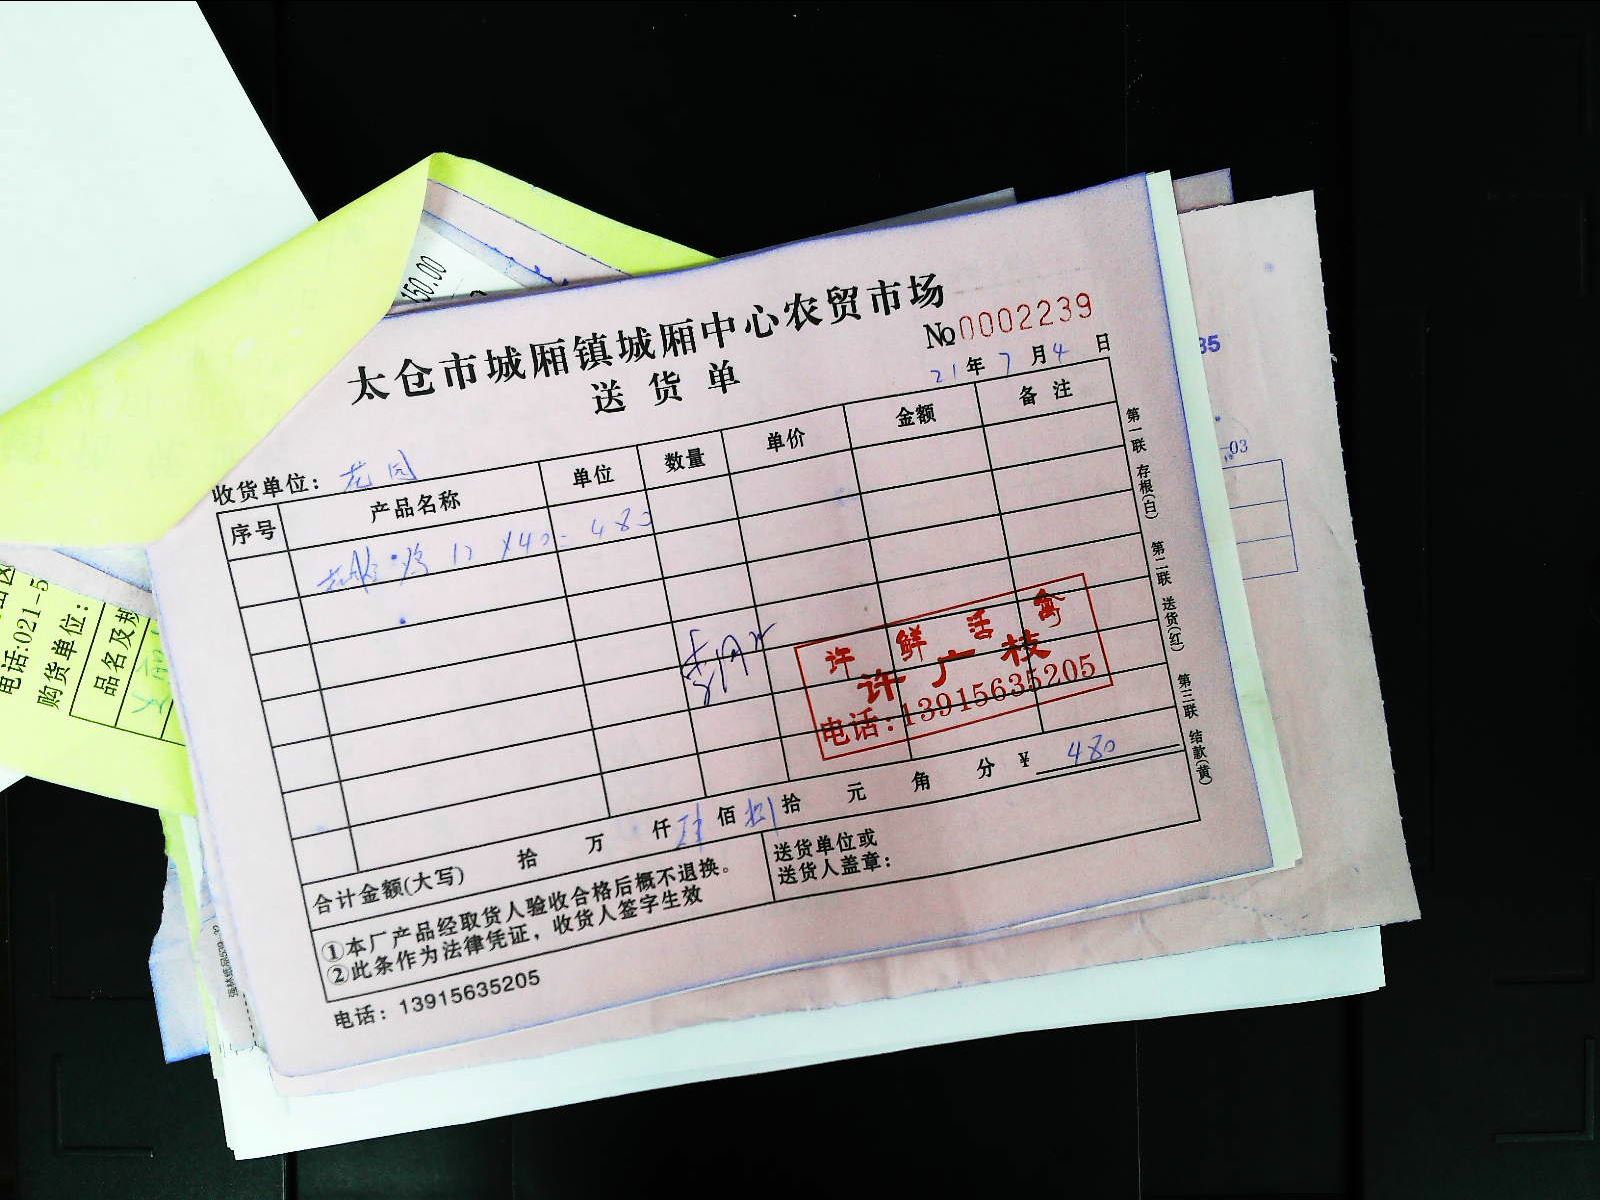 太仓市城厢镇城厢中心农贸市场
送货单
№0002239
21年7月4日
收货单位：花园
序号 产品名称 单位 数量 单价 金额 备注
12 ×40= 480
许鲜活禽
许广枝
电话:13915635205
合计金额(大写) 拾 万 仟 肆 佰 捌 拾 元 角 分 ¥ 480
①本厂产品经取货人验收合格后概不退换。
②此条作为法律凭证，收货人签字生效
送货单位或
送货人盖章：
电话：13915635205
第一联 存根(白) 第二联 送货(红) 第三联 结款(黄)
150.00
35
-03
电话:021-5
购货单位：
品名及规